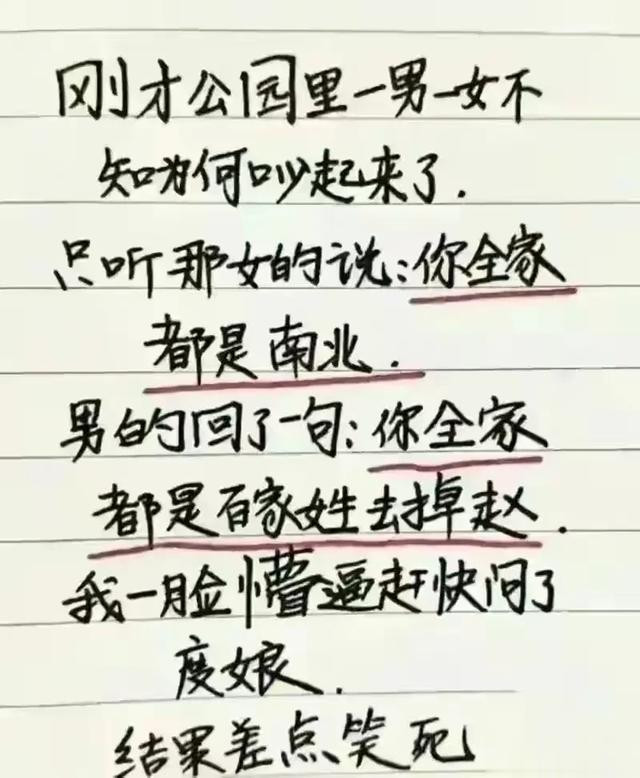 刚才公园里一男一女不
知为何吵起来了.
只听那女的说:你全家
都是南北.
男的回了一句:你全家
都是百家姓去掉赵.
我一脸懵逼赶快问了
度娘.
结果差点笑死